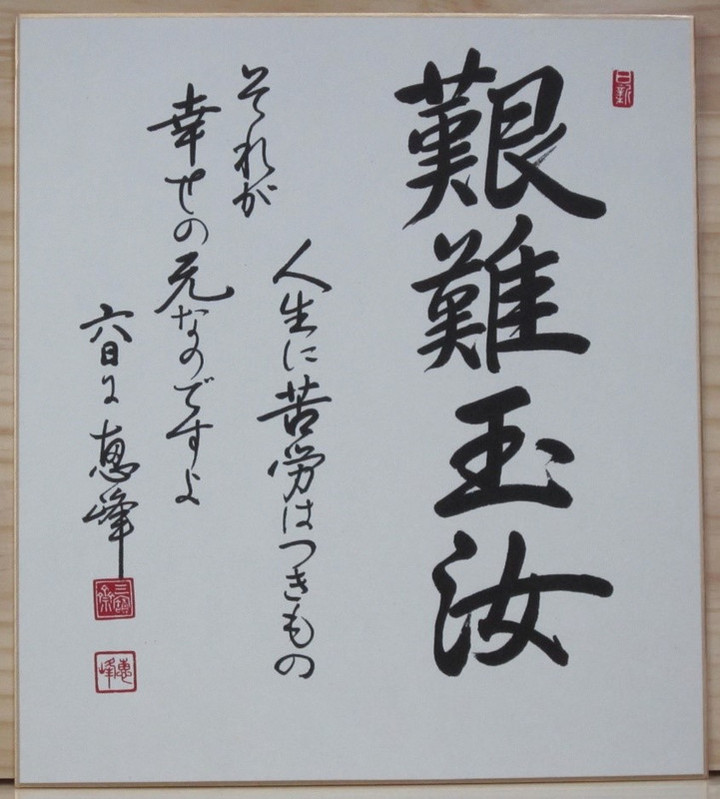 艱難玉汝
人生に苦労はつきもの
それが
幸せの元なのですよ
恵峰
日新
恵峰